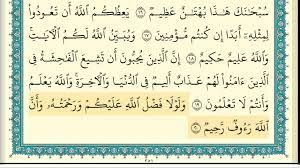 سُبْحَٰنَكَ هَٰذَا بُهْتَٰنٌ عَظِيمٌ ١٦ يَعِظُكُمُ ٱللَّهُ أَن تَعُودُوا۟
لِمِثْلِهِۦٓ أَبَدًا إِن كُنتُم مُّؤْمِنِينَ ١٧ وَيُبَيِّنُ ٱللَّهُ لَكُمُ ٱلْءَايَٰتِ
وَٱللَّهُ عَلِيمٌ حَكِيمٌ ١٨ إِنَّ ٱلَّذِينَ يُحِبُّونَ أَن تَشِيعَ ٱلْفَٰحِشَةُ فِى
ٱلَّذِينَ ءَامَنُوا۟ لَهُمْ عَذَابٌ أَلِيمٌ فِى ٱلدُّنْيَا وَٱلْءَاخِرَةِ وَٱللَّهُ يَعْلَمُ
وَأَنتُمْ لَا تَعْلَمُونَ ١٩ وَلَوْلَا فَضْلُ ٱللَّهِ عَلَيْكُمْ وَرَحْمَتُهُۥ وَأَنَّ
ٱللَّهَ رَءُوفٌ رَّحِيمٌ ٢٠